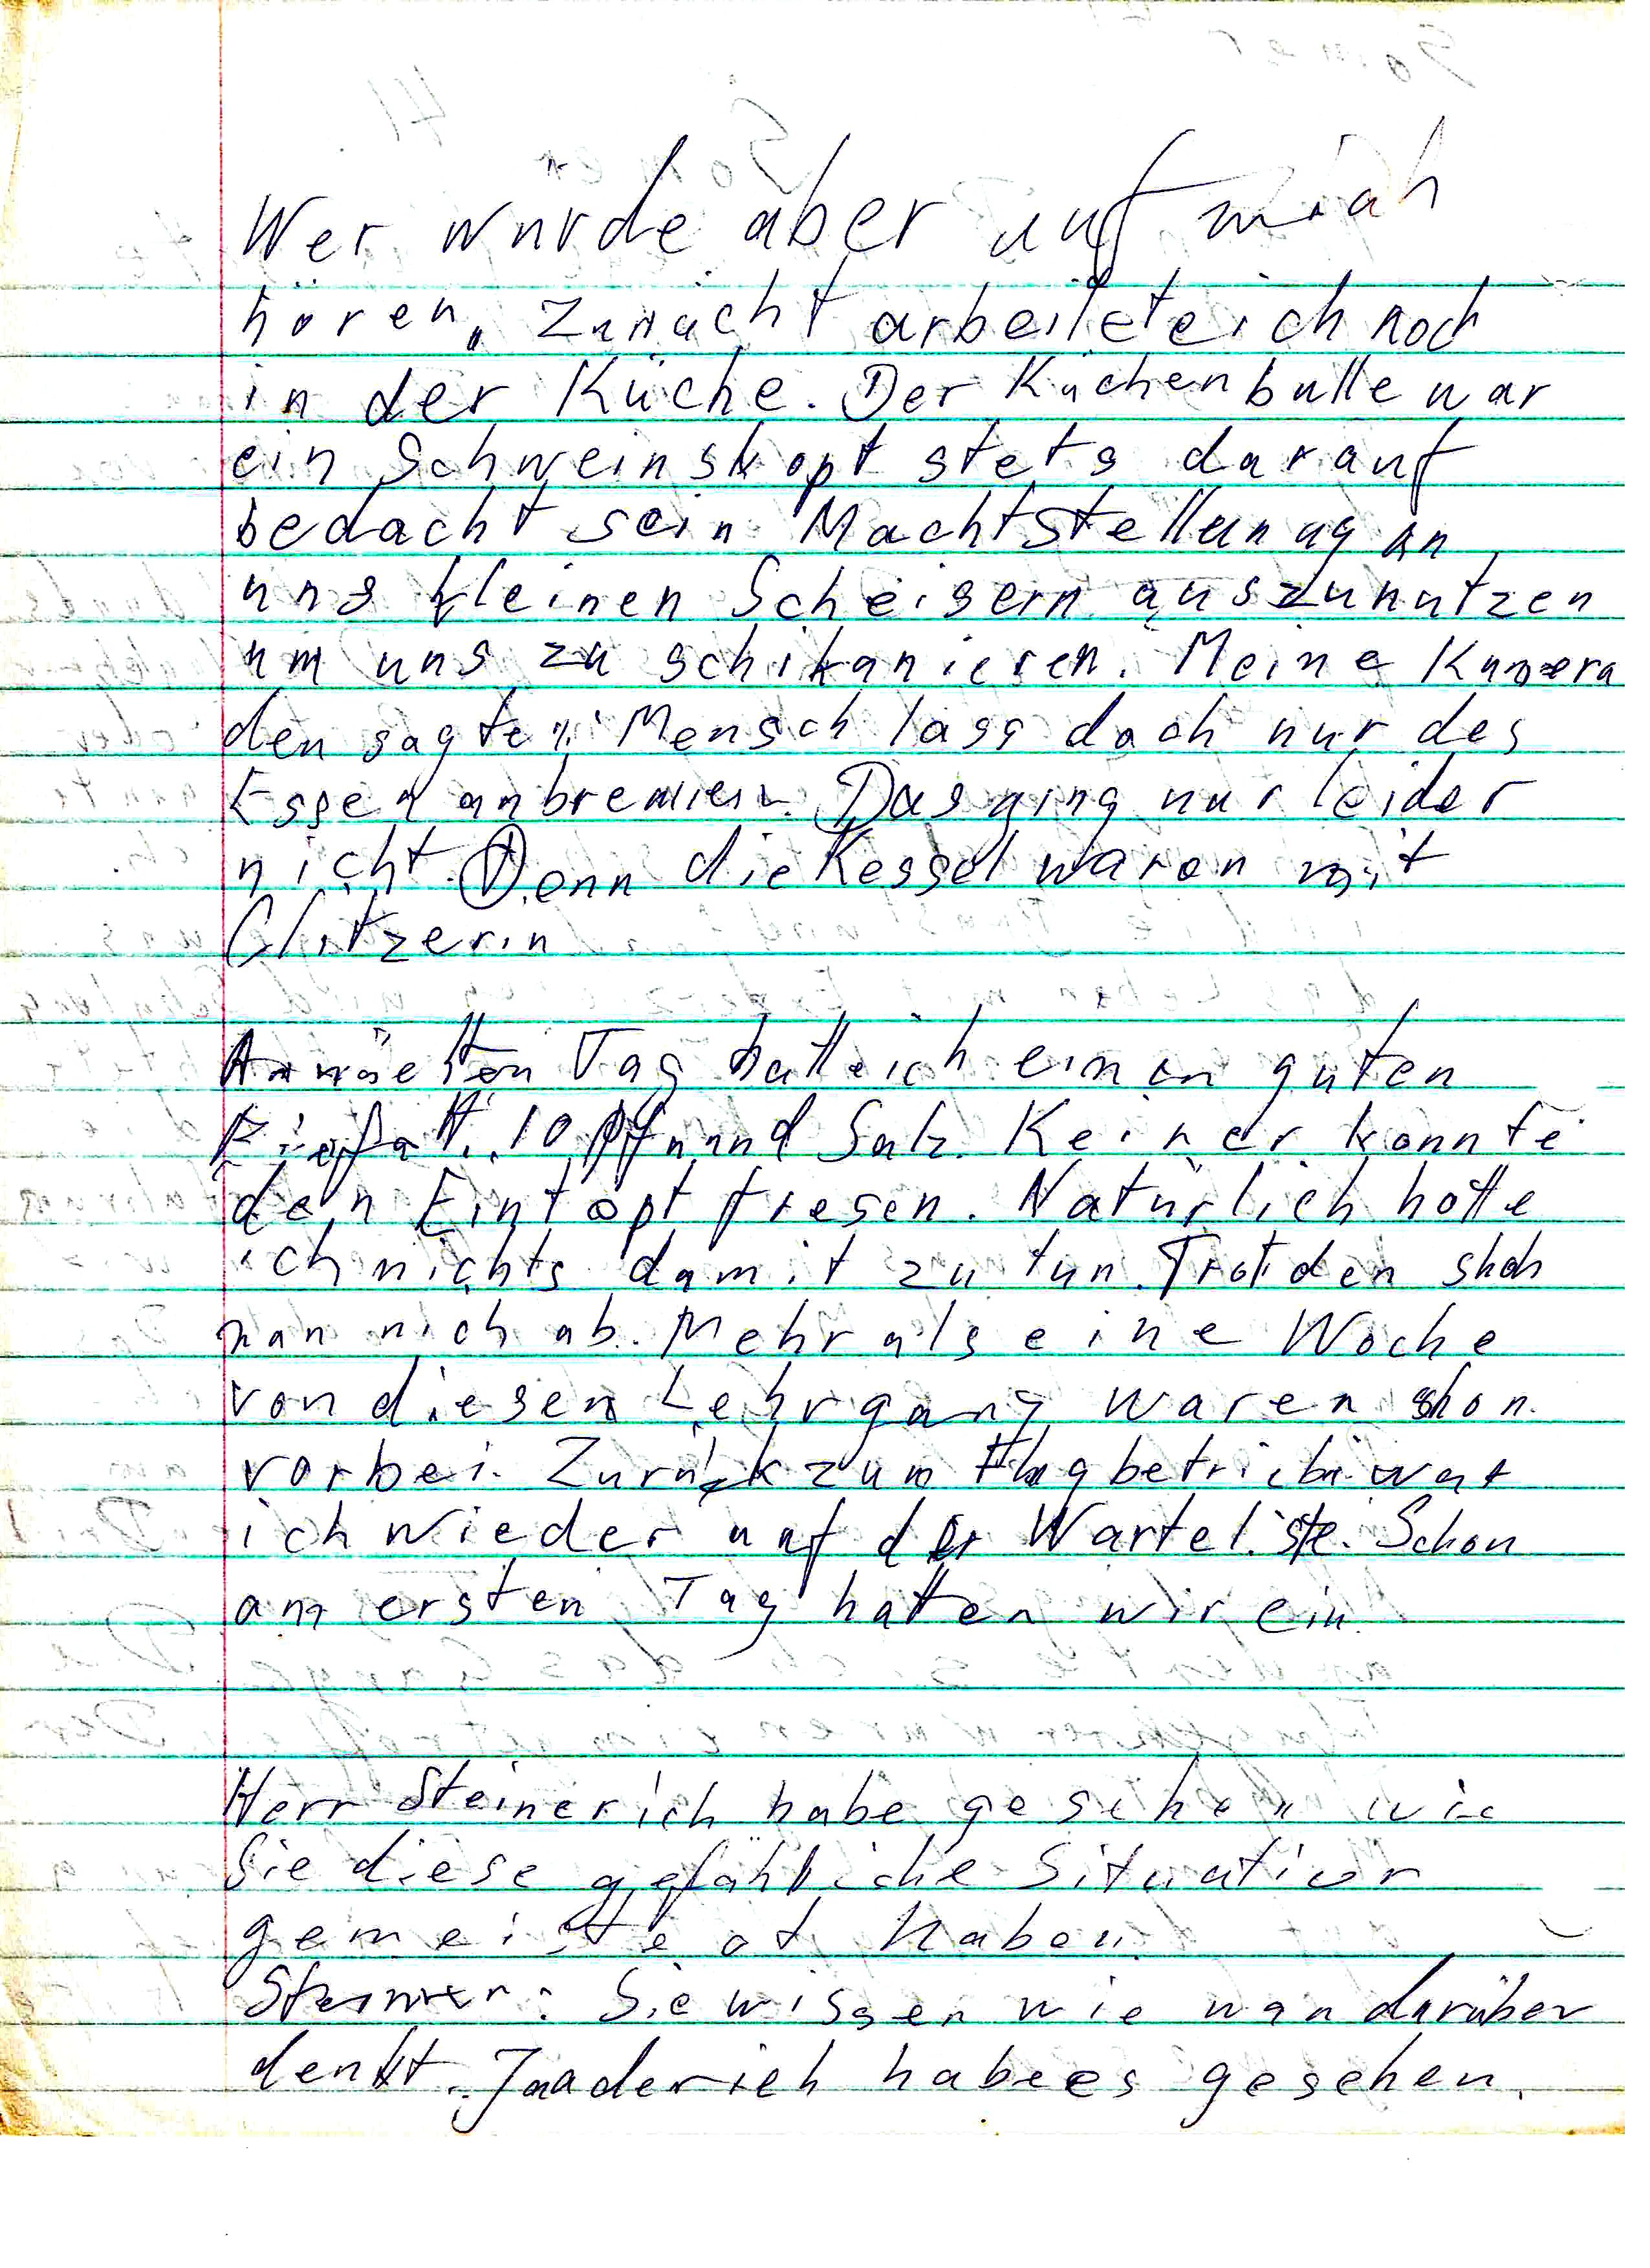 Wer wurde aber auf mich
hören. Zunächt arbeitete ich noch
in der Küche. Der Küchenbulle war
ein Schweinskopt stets darauf
bedacht sein Machtstellunug an
uns kleinen Scheisern auszunutzen
um uns zu schikanieren. Meine Kamera
den sagten: Mensch lass doch nur des
Essen anbrennen. Das ging nur leider
nicht. Denn die Kessel waren mit
Glitzerin
Tag hatte ich einen guten
10 Pfund Salz. Keiner konnte
den Eintopt fresen. Natürlich hatte
ich nichts damit zu tun. Trotzden
man mich ab. Mehr als eine Woche
von diesem Lehrgang waren schon
vorbei. Zurück zum Flugbetrieb war
ich wieder auf der Warteliste. Schon
am ersten Tag hatten wir ein
Herr Steiner ich habe gesehen wie
Sie diese gefähliche Situation
gemeistert haben.
Steiner: Sie wissen wie man darüber
denkt. Jaaderich habees gesehen.